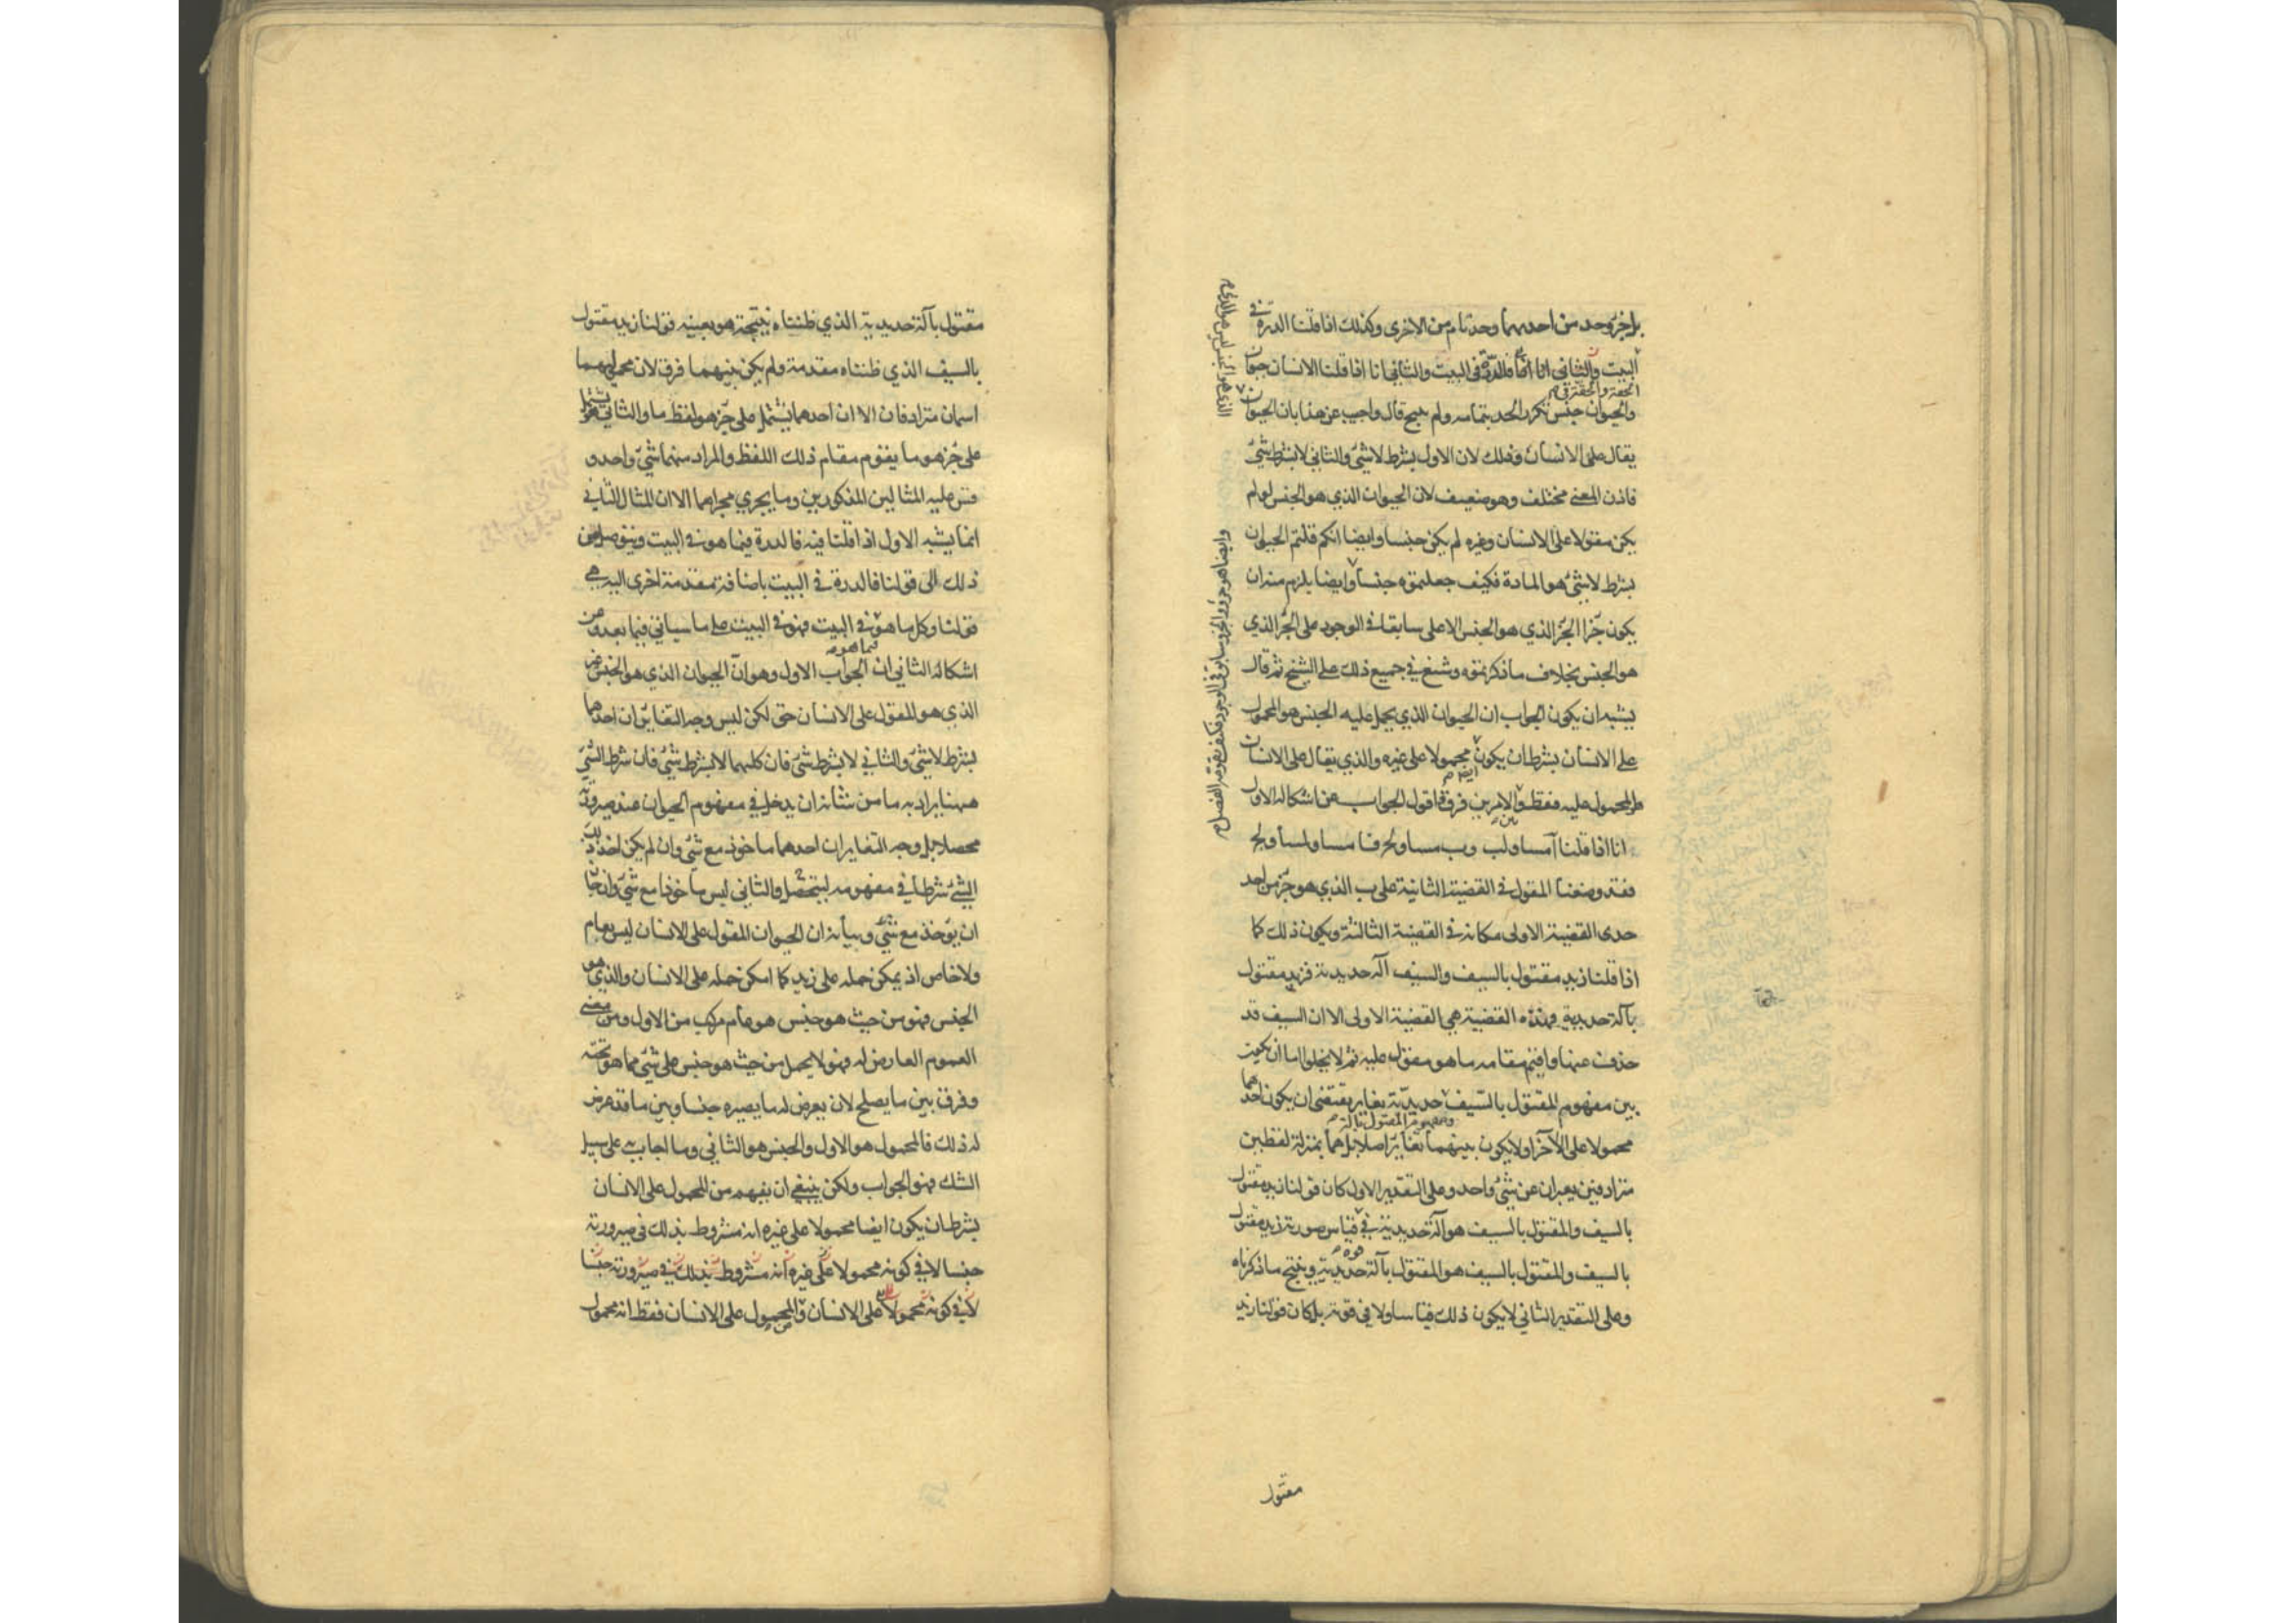 بل جزء حد من احديهما وحد تام من الاخرى وكذلك اذا قلنا الدرة في
البيت والثاني انا اذا قلنا الانسان حيوان
الحقة والحقة في
والحيوان جنس تكرر الحد بتمامه ولم ينتج قال واجيب عن هذا بان الحيوان
الذي هو الجنس ليس هو الذي
يقال على الانسان وذلك لان الاول بشرط لا شئ والثاني لا بشرط شئ
فاذن المعنى مختلف وهو ضعيف لان الحيوان الذي هو الجنس لو لم
يكن مقولا على الانسان وغيره لم يكن جنسا وايضا انكم قلتم الحيوان
بشرط لا شئ هو المادة فكيف جعلتموه جنسا وايضا يلزم منه ان
وايضا هو جزء والجزء سابق في الوجود فكيف يقومه الفصل
يكون جزء الجزء الذي هو الجنس الاعلى سابقا في الوجود على الجزء الذي
هو الجنس بخلاف ما ذكرتموه وشنع في جميع ذلك على الشيخ ثم قال
يشبه ان يكون الجواب ان الحيوان الذي يحمل عليه الجنس هو المحمول
على الانسان بشرط ان يكون محمولا على غيره والذي يقال على الانسان
ايضا
هو المحمول عليه فقط و الامرين فرق فاقول الجواب عن اشكاله الاول
بين
انا اذا قلنا آ مساو لب وب مساو لج فا مساو لمساو لج
فقد وضعنا المقول في القضية الثانية على ب الذي هو جزء من احد
حدى القضية الاولى مكانه في القضية الثالثة ويكون ذلك كما
اذا قلنا زيد مقتول بالسيف والسيف آلة حديدية فزيد مقتول
بآلة حديدية وهذه القضية هي القضية الاولى الا ان السيف قد
حذف عنها واقيم مقامه ما هو مقول عليه ثم لا يخلوا اما ان يكون
بين مفهوم المقتول بالسيف حديدية تغاير يقتضي ان يكون احدهما
ومفهوم المقتول بآلة
محمولا على الآخر او لا يكون بينهما تغاير اصلا بل هما بمنزلة لفظين
مترادفين يعبران عن شئ واحد وعلى التقدير الاول كان قولنا زيد مقتول
بالسيف والمقتول بالسيف هو آلة حديدية في قياس صورته زيد مقتول
بالسيف والمقتول بالسيف هو المقتول بآلة حديدية وينتج ما ذكرناه
وعلى التقدير الثاني لا يكون ذلك قياسا ولا في قوته بل كان قولنا زيد
مقتول
مقتول بآلة حديدية الذي ظنناه نتيجة هو بعينه قولنا زيد مقتول
بالسيف الذي ظنناه مقدمة ولم يكن بينهما فرق لان محموليهما
اسمان مترادفان الا ان احدهما يشتمل على جزء هو لفظ ما والثاني يشتمل
على جزء هو ما يقوم مقام ذلك اللفظ والمراد منهما شئ واحد و
قس عليه المثالين المذكورين وما يجري مجراهما الا ان المثال الثاني
انما يشبه الاول اذا قلنا فيه فالدرة فيما هو في البيت ويتوصل من
ذلك الى قولنا فالدرة في البيت باضافة مقدمة اخرى اليه هي
قولنا وكل ما هو في البيت فهو في البيت على ما سياتي فيما بعد وعن
فيما هو
اشكاله الثاني ان الجواب الاول وهو ان الحيوان الذي هو الجنس غير
الذي هو المقول على الانسان حق لكن ليس وجه التغاير ان احدهما
بشرط لا شئ والثاني لا بشرط شئ فان كليهما لا بشرط شئ فان شرط الشئ
ههنا يراد به ما من شانه ان يدخل في مفهوم الحيوان عند صيرورته
محصلا بل وجه التغاير ان احدهما ماخوذ مع شئ وان لم يكن اخذ ذلك
الشئ شرطا في مفهومه ليتحصل والثاني ليس ماخوذا مع شئ وان جاز
ان يؤخذ مع شئ وبيانه ان الحيوان المقول على الانسان ليس بعام
ولا خاص اذ يمكن حمله على زيد كما امكن حمله على الانسان والذي هو
الجنس فهو من حيث هو جنس هو عام مركب من الاول ومن معنى
العموم العارض له فهو لا يحمل من حيث هو جنس على شئ مما هو تحته
وفرق بين ما يصلح لان يعرض له ما يصيره جنسا وبين ما قد عرض
له ذلك فالمحمول هو الاول والجنس هو الثاني وما اجاب به على سبيل
الشك فهو الجواب ولكن ينبغي ان يفهم من المحمول على الانسان
بشرط ان يكون ايضا محمولا على غيره انه مشروط بذلك في صيرورته
جنسا لا في كونه محمولا على غيره انه مشروط بذلك في صيرورته جنسا
لا في كونه محمولا على الانسان و المحمول على الانسان فقط انه محمول